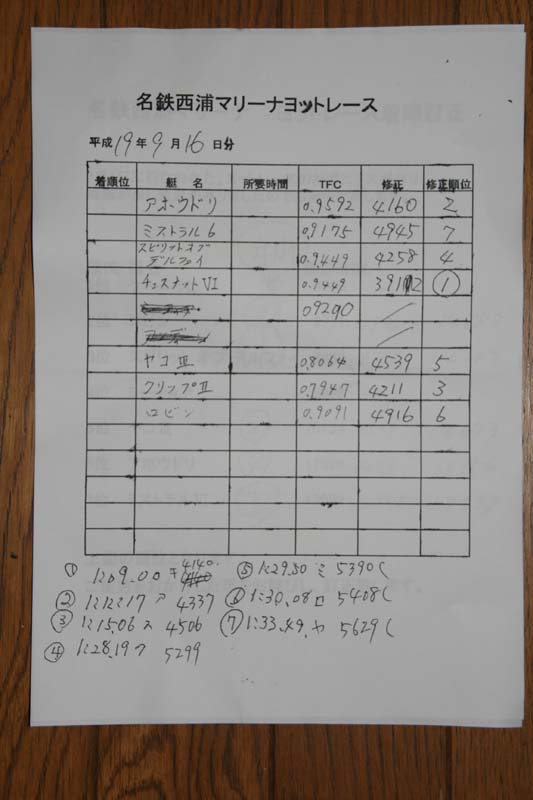 名鉄西浦マリーナヨットレース
平成19年9月16日分
着順位 艇 名 所要時間 TFC 修正 修正順位
アホウドリ 0.9592 4160 2
ミストラル6 0.9175 4945 7
スピリットオブ
デルフィイ 0.9449 4258 4
チェスナットVI 0.9449 3912 ①
09290
ヤコIII 0.8064 4539 5
クリップII 0.7947 4211 3
ロビン 0.9091 4916 6
① 1:09.00 チ 4140.
② 1:12:17 ア 4337
③ 1:15.06 ス 4506
④ 1:28.19 ク 5299
⑤ 1:29.50 ミ 5390
⑥ 1:30.08 ロ 5408
⑦ 1:33.49. ヤ 5629